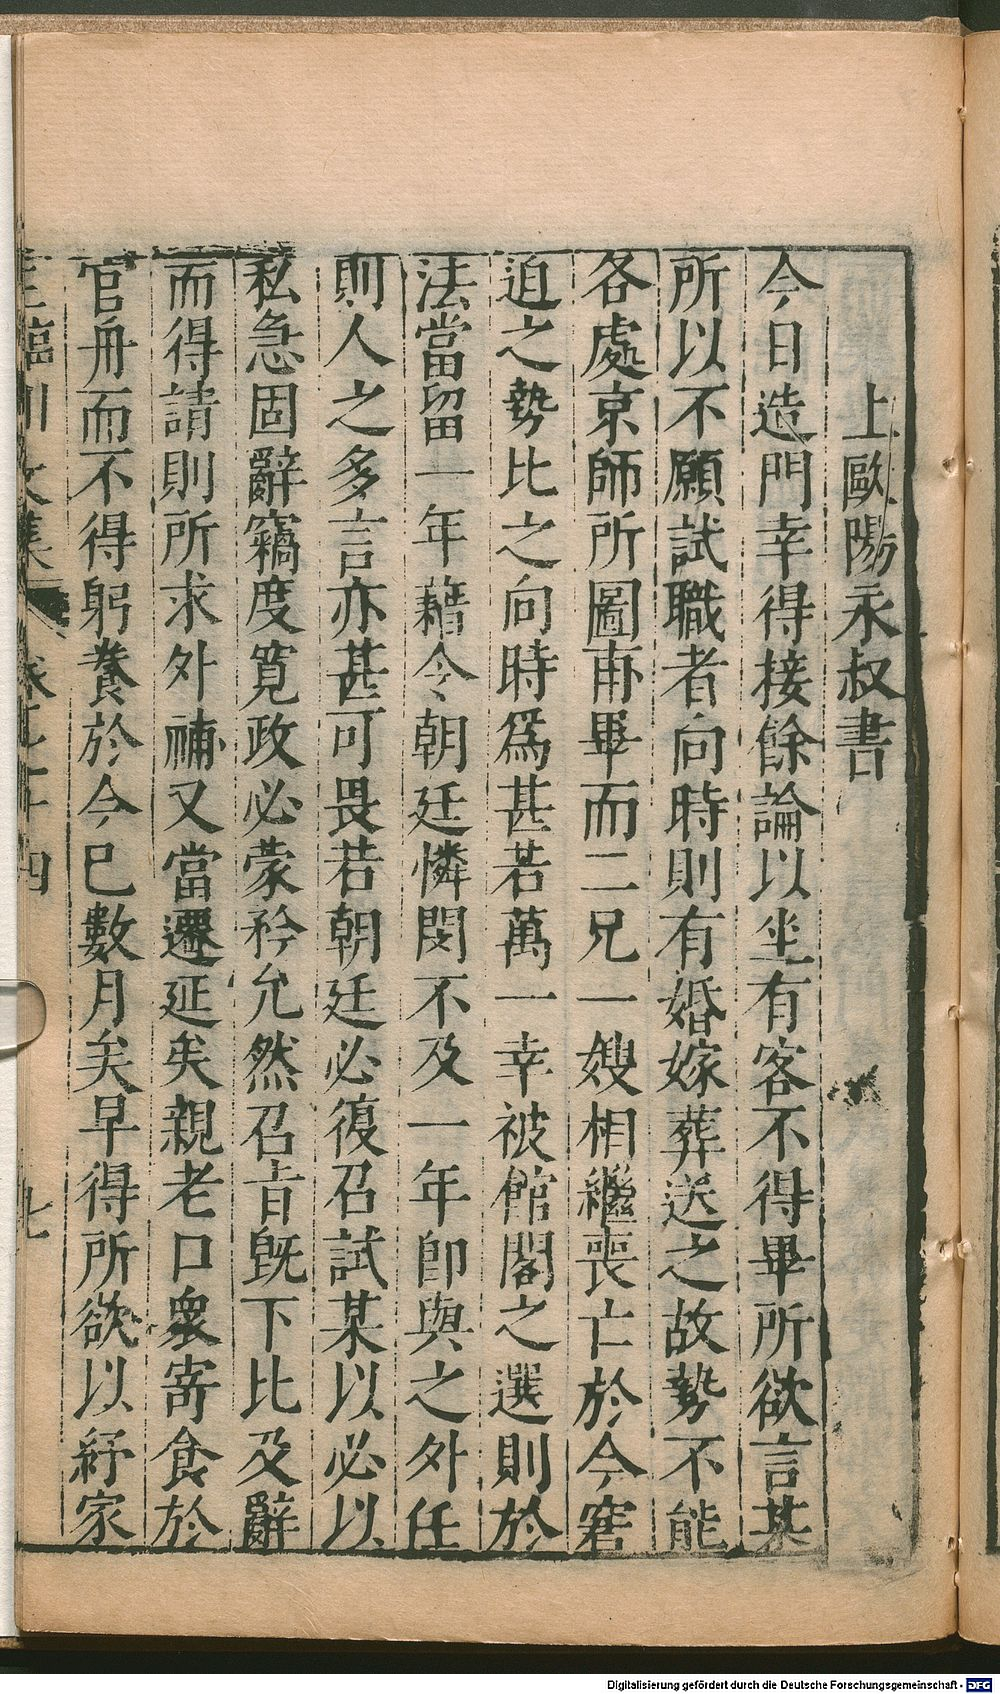 上歐陽永叔書
今日造門幸得接餘論以坐有客不得畢所欲言某
所以不願試職者向時則有婚嫁葬送之故勢不能
各處京師所圖甫畢而二兄一嫂相繼喪亡於今窘
迫之勢比之向時為甚若萬一幸被館閣之選則於
法當留一年藉令朝廷憐閔不及一年即與之外任
則人之多言亦甚可畏若朝廷必復召試某以必以
私急固辭竊度寬政必蒙矜允然召旨既下比及辭
而得請則所求外補又當遷延矣親老口衆寄食於
官舟而不得躬養於今已數月矣早得所欲以紓家
王臨川文集 卷七十四 七
Digitalisierung gefördert durch die Deutsche Forschungsgemeinschaft - DFG